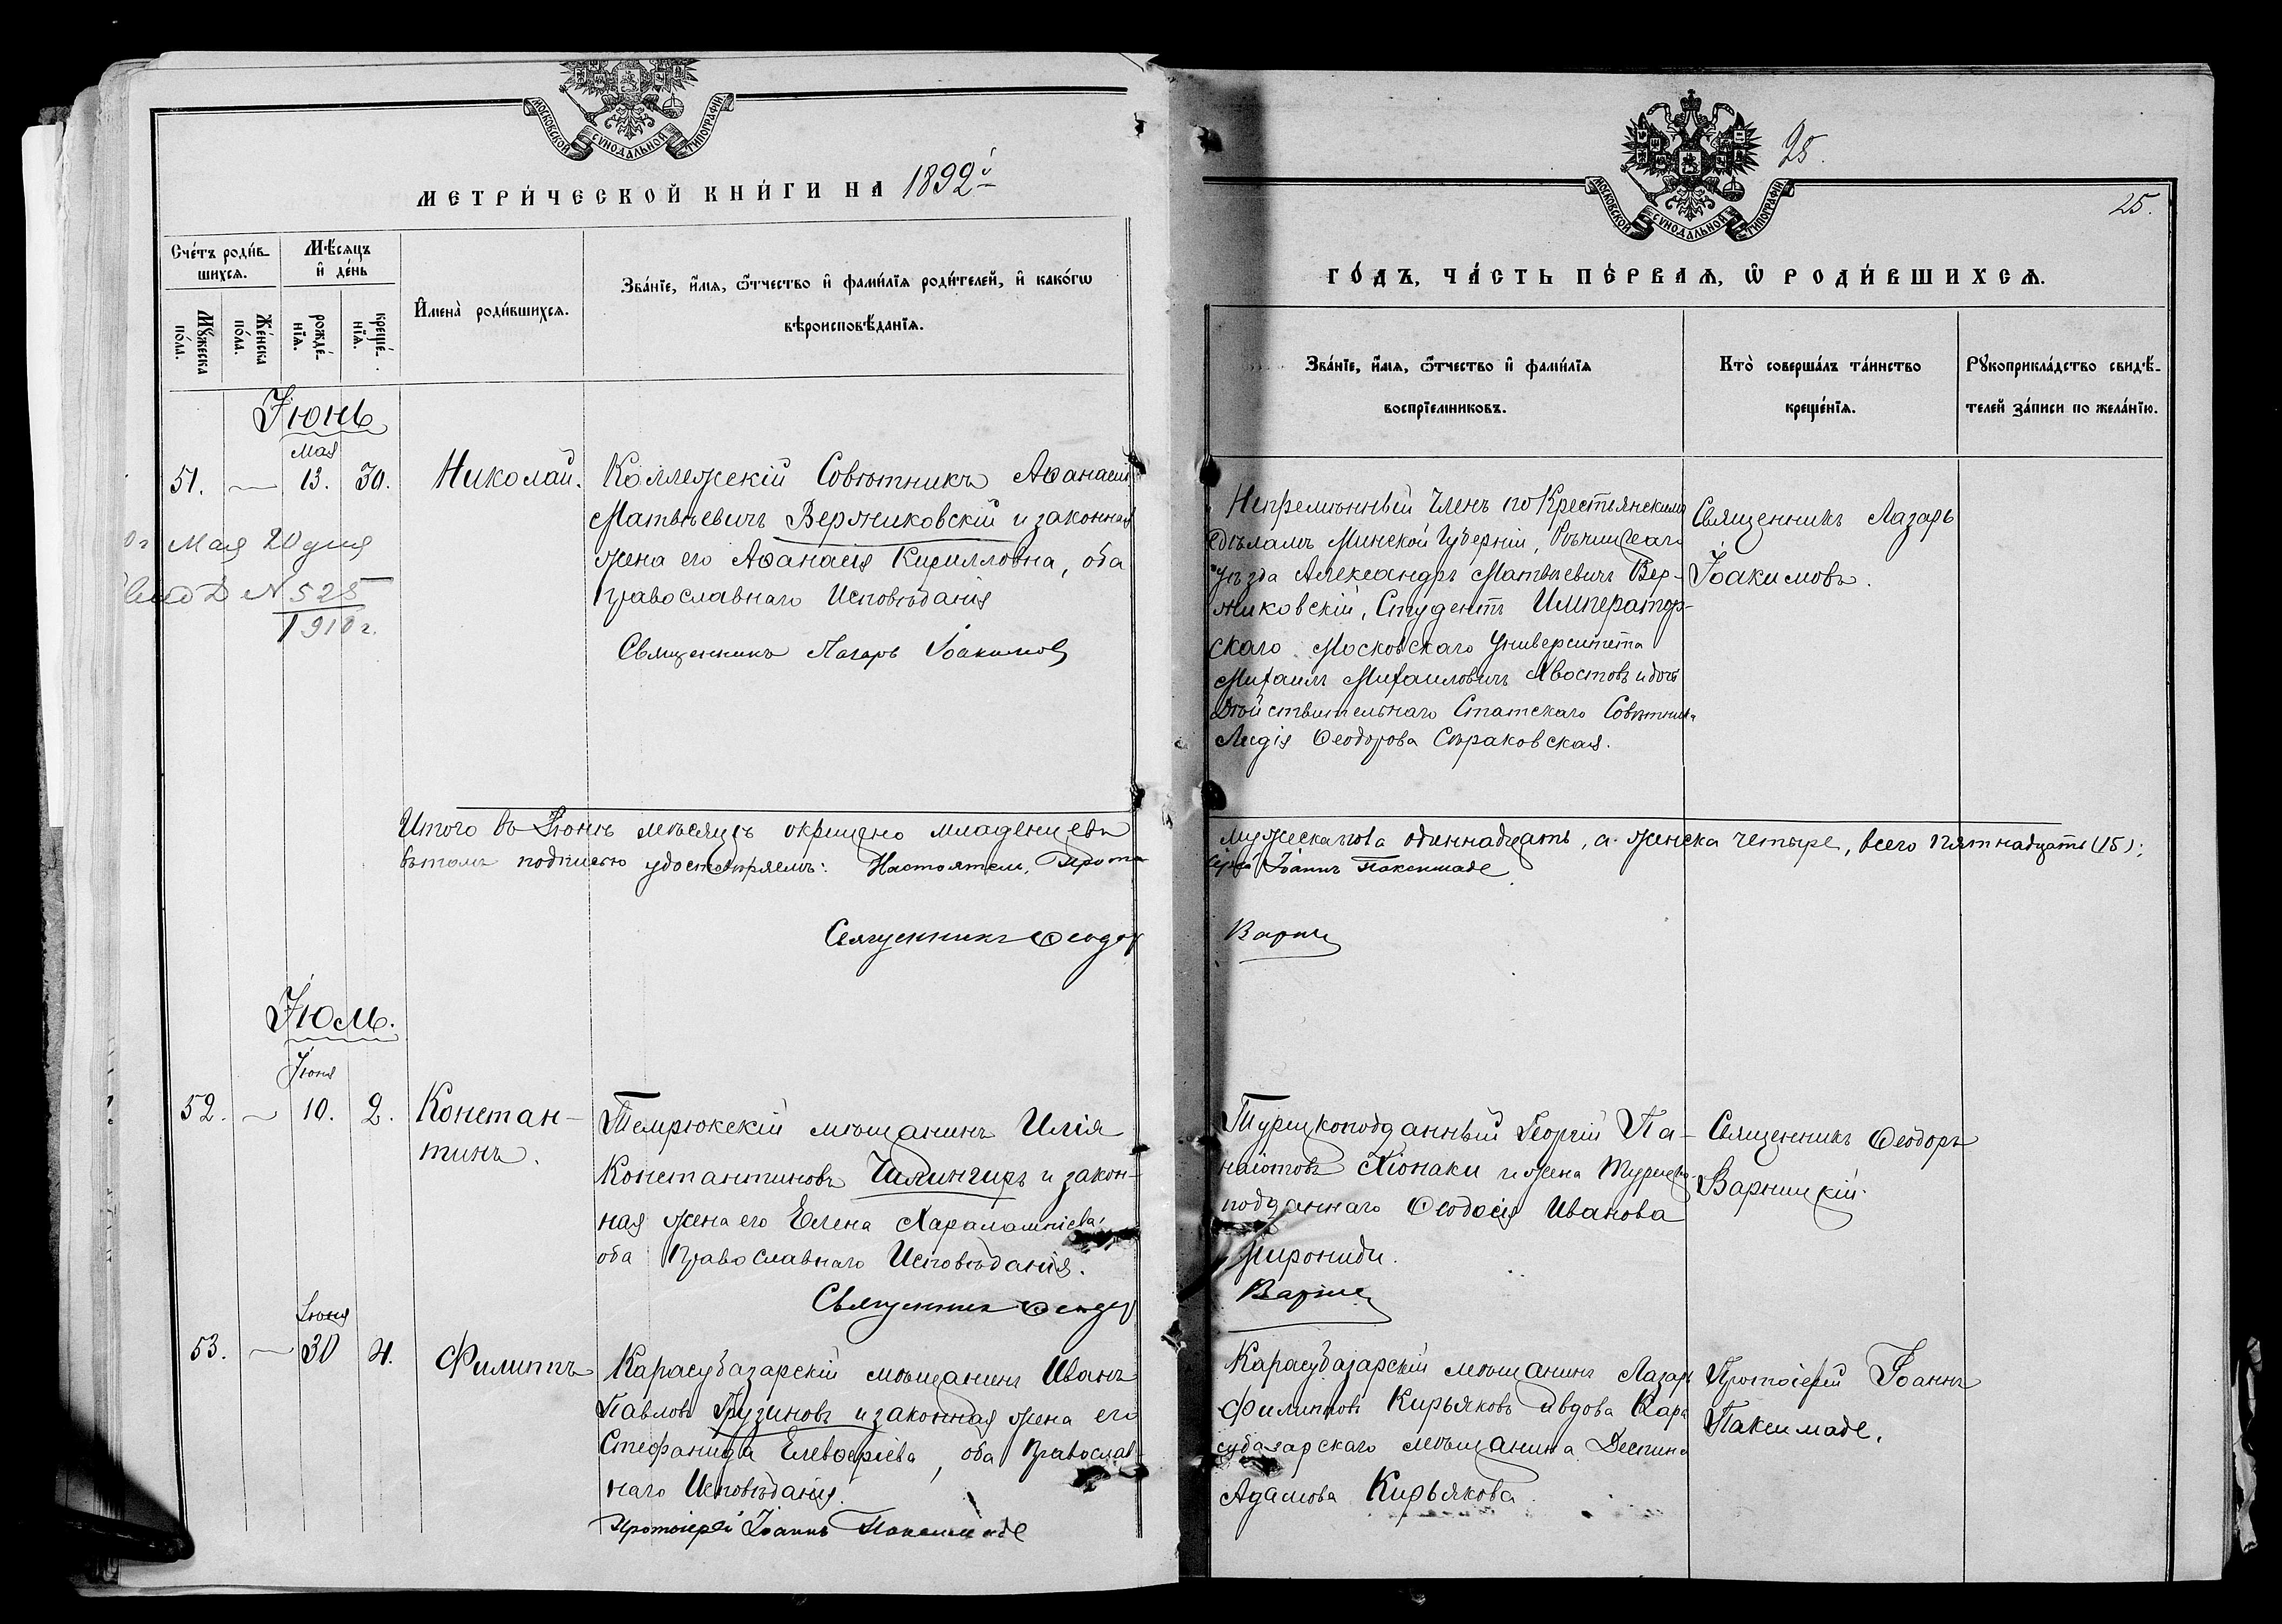 МОСКОВСКОЙ СѴНОДАЛЬНОЙ ТИПОГРАФІИ
МЕТРИ́ЧЕСКОЙ КНИ́ГИ НА 1892й
Сче́тъ роди́в-
шихся.
Мѣ́сяцъ
и҆ де́нь
Мꙋ́жеска
по́ла.
Же́нска
по́ла.
рожде́-
нїя.
креще́-
нїя.
И҆мена̀ роди́вшихся.
Зва́нїе, и҆́мя, ѻ҆́тчество и҆ фами́лїя роди́телей, и҆ како́гѡ
вѣроисповѣ́данїя.
Іюнь
Мая
51. — 13. 30. Николай.
Коллежскій Совѣтникъ Аѳанасій
Матвѣевичъ Верниковскій и законная
жена его Аѳанасія Кирилловна, оба
Православнаго Исповѣданія
Священникъ Лазарь Іоакимовъ
Мая 20 дня
N 525
1910 г.
Итого въ Іюнѣ мѣсяцѣ окрещено младенцевъ
въ томъ подписью удостовѣряемъ: Настоятель, Прото
Священникъ Ѳеодор
Іюль.
Іюня
52. — 10. 2. Констан-
тинъ.
Темрюкскій мѣщанинъ Илія
Константиновъ Чилингиръ и закон-
ная жена его Елена Харалампіева,
оба Православнаго Исповѣданія.
Священникъ Ѳеодор
Іюня
53. — 30 4. Филиппъ
Карасубазарскій мѣщанинъ Иванъ
Павловъ Грузиновъ и законная жена его
Стефанида Елевѳеріева, оба Православ-
наго Исповѣданія.
Протоіерей Іоаннъ Паксимаде
25.
МОСКОВСКОЙ СѴНОДАЛЬНОЙ ТИПОГРАФІИ
25.
ГО́ДЪ, ЧА́СТЬ ПЕ́РВАЯ, Ѡ҆ РОДИ́ВШИХСЯ.
Зва́нїе, и҆́мя, ѻ҆́тчество и҆ фами́лїя
воспрїе́мниковъ.
Кто̀ соверша́лъ та́инство
креще́нїя.
Рꙋкоприкла́дство свидѣ́-
телей за́писи по жела́нїю.
Непремѣнный Членъ по Крестьянскимъ
дѣламъ Минской Губерніи, Рѣчицкаго
уѣзда Александръ Матвѣевичъ Вер-
никовскій, Студентъ Император-
скаго Московскаго Университета
Михаилъ Михаиловичъ Хвостовъ и дочь
Дѣйствительнаго Статскаго Совѣтника
Лидія Ѳеодорова Сѣраковская.
Священникъ Лазарь
Іоакимовъ.
мужеска пола одиннадцать, а женска четыре, всего пятнадцать (15);
іерей Іоаннъ Паксимаде
Варниц
Турецкоподданный Георгій Па-
наіотовъ Хіонаки и жена Турецко-
подданнаго Ѳеодосія Иванова
Мирониди.
Варниц
Священникъ Ѳеодоръ
Варницкій.
Карасубазарскій мѣщанинъ Лазарь
Филипповъ Кирьяковъ и вдова Кара
субазарскаго мѣщанина Деспина
Адамова Кирьякова.
Протоіерей Іоаннъ
Паксимаде.